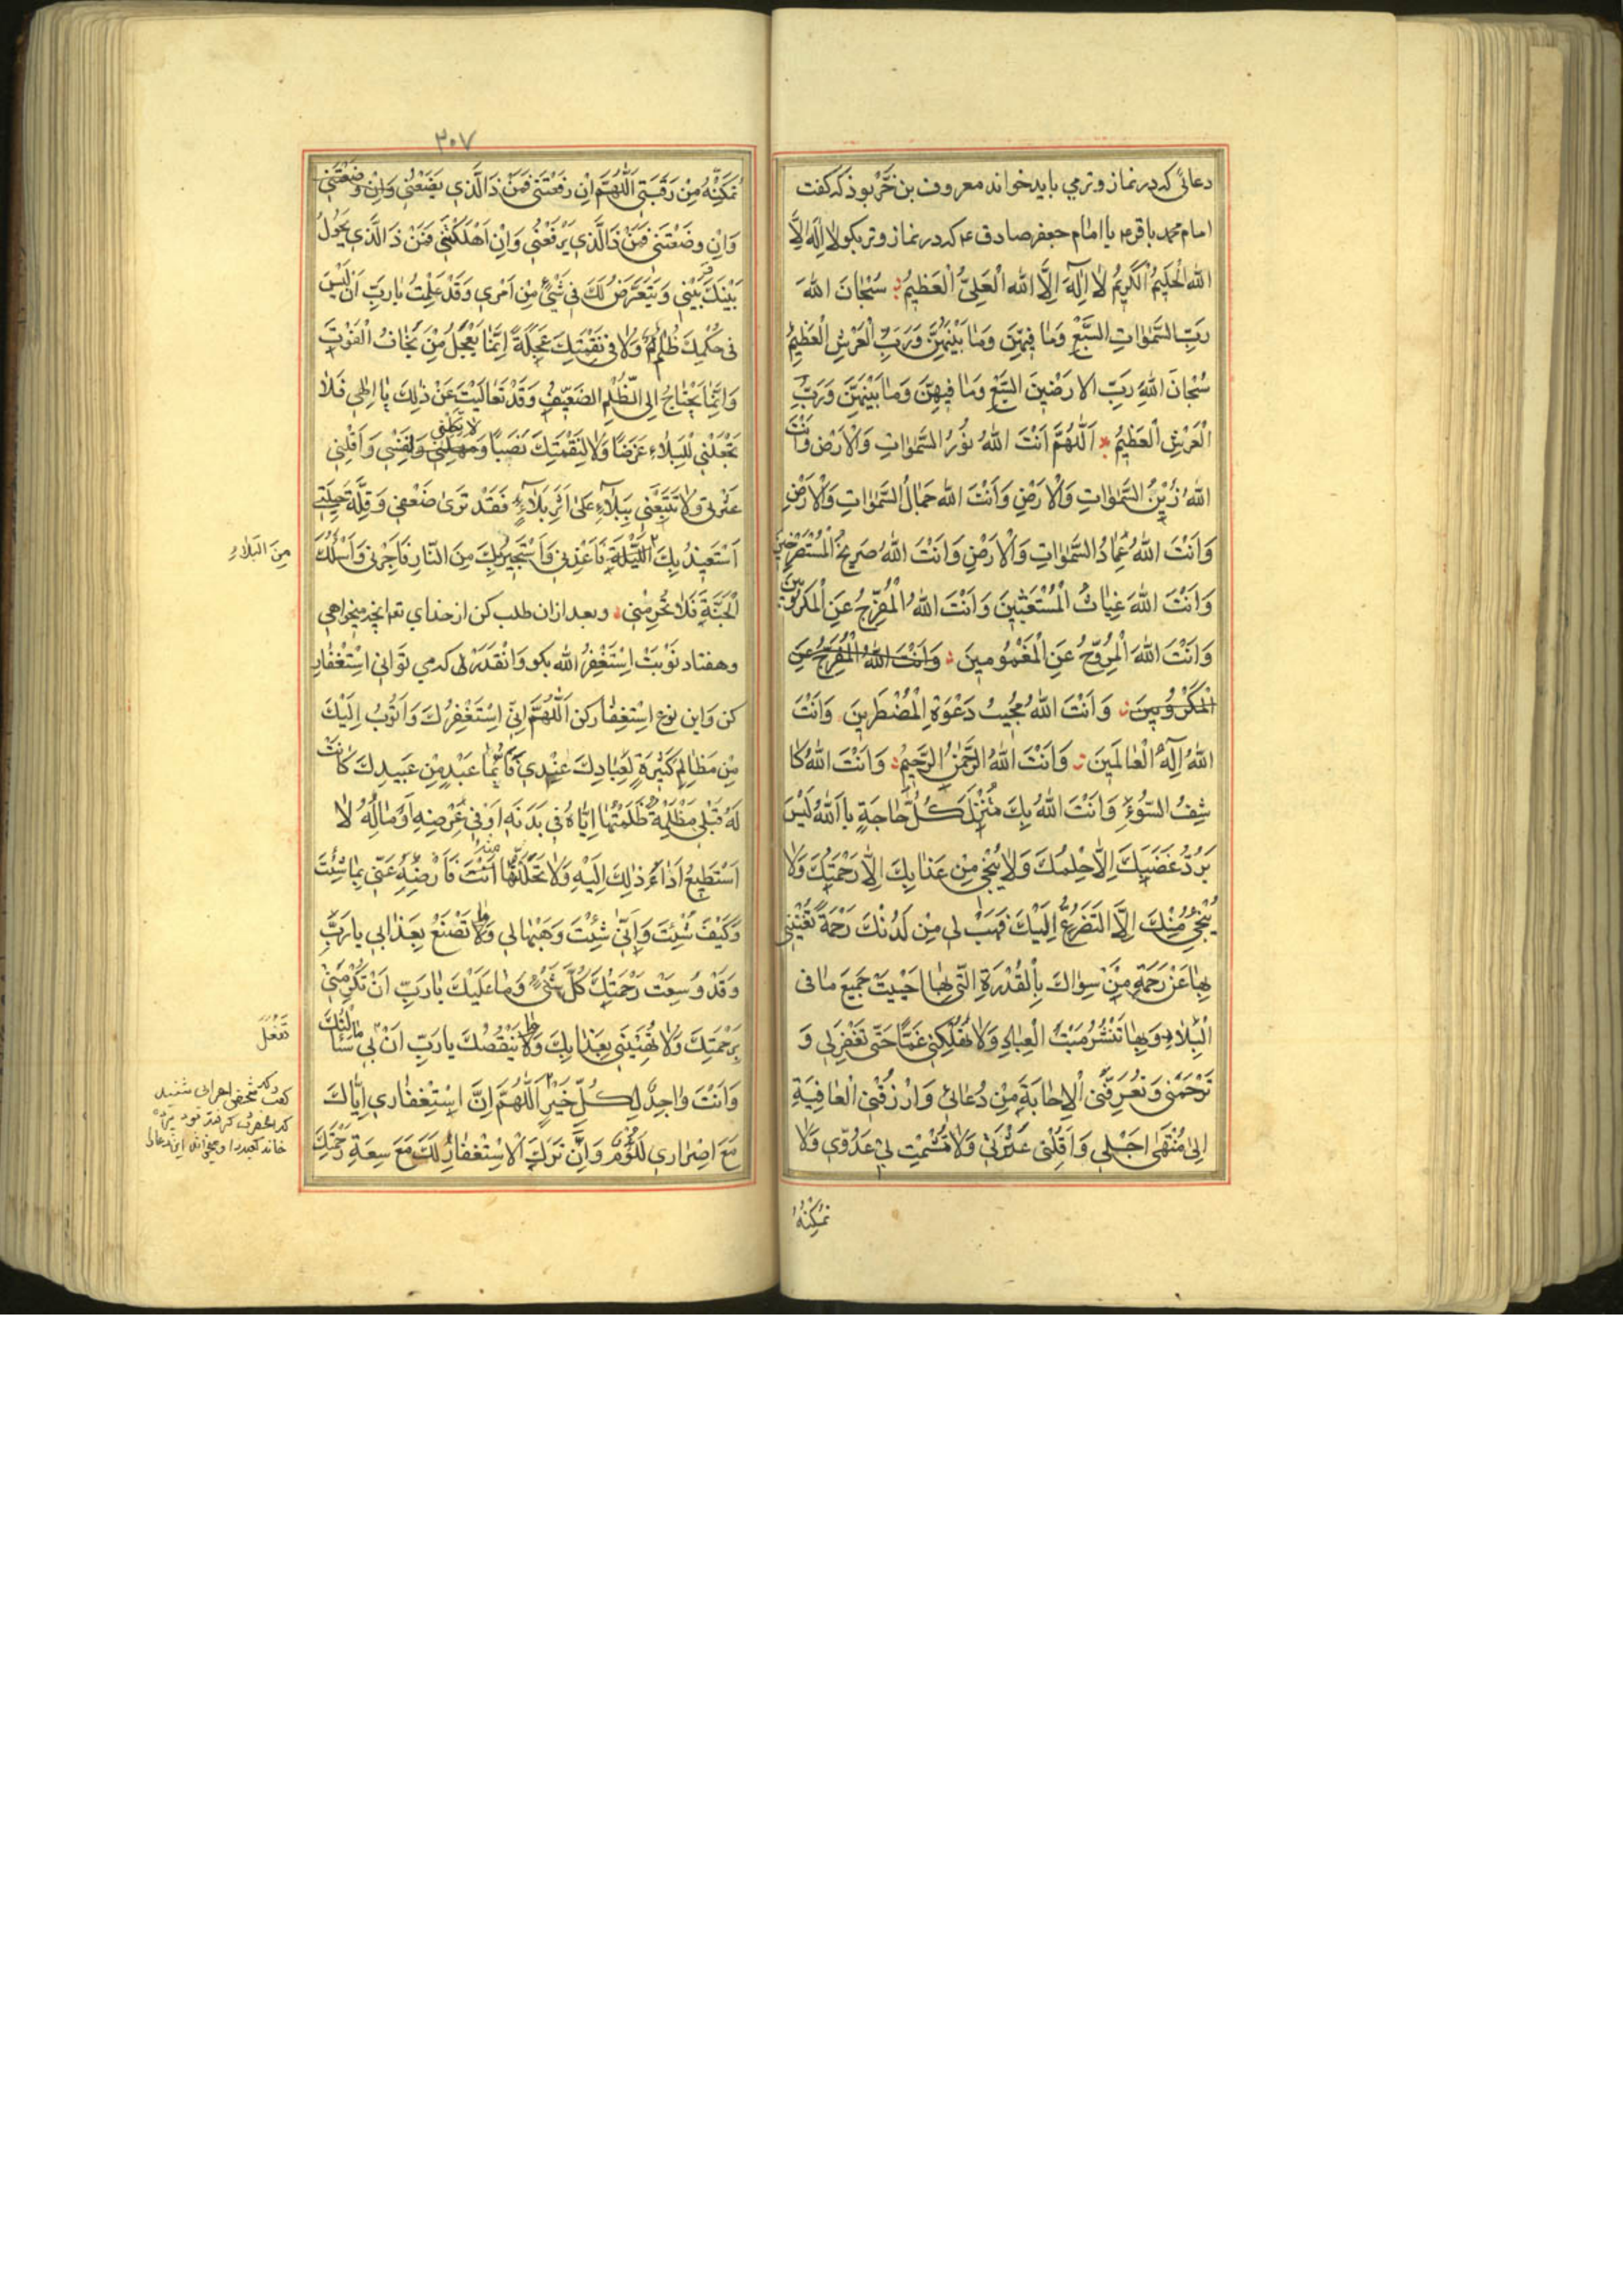 دعائی که در نماز وتر می باید خواند معروف بن خربوذ که گفت
امام محمد باقر ع یا امام جعفر صادق ع که در نماز وتر بکو لا اِلٰهَ اِلَّا
اللهُ الْحَلیمُ الْکَریمُ لا اِلٰهَ اِلَّا اللهُ الْعَلِیُّ الْعَظیمُ سُبْحانَ اللهِ
رَبِّ السَّمٰوٰاتِ السَّبْعِ وَمٰا فیهِنَّ وَمٰا بَیْنَهُنَّ وَرَبِّ الْعَرْشِ الْعَظیمِ
سُبْحانَ اللهِ رَبِّ الارَضْینَ السَّبْعِ وَمٰا فیهِنَّ وَمٰا بَیْنَهُنَّ وَرَبِّ
الْعَرْشِ الْعَظیمِ اَللّٰهُمَّ اَنْتَ اللهُ نُورُ السَّمٰوٰاتِ وَالْاَرْضِ وَاَنْتَ
اللهُ زَیْنُ السَّمٰوٰاتِ وَالْاَرْضِ وَاَنْتَ اللهُ جَمٰالُ السَّمٰوٰاتِ وَالْاَرْضِ
وَاَنْتَ اللهُ عِمٰادُ السَّمٰوٰاتِ وَالْاَرْضِ وَاَنْتَ اللهُ صَریخُ الْمُسْتَصْرِخینَ
وَاَنْتَ اللهُ غِیٰاثُ الْمُسْتَغیثینَ وَاَنْتَ اللهُ الْمُفَرِّجُ عَنِ الْمَکْرُوبینَ
وَاَنْتَ اللهُ الْمُرَوِّحُ عَنِ الْمَغْمُومینَ وَاَنْتَ اللهُ الْمُفَرِّجُ عَنِ
الْمَکْرُوبینَ وَاَنْتَ اللهُ مُجیبُ دَعْوَةِ الْمُضْطَرینَ وَاَنْتَ
اللهُ اِلٰهُ الْعٰالَمینَ وَاَنْتَ اللهُ الرَّحْمٰنُ الرَّحیمُ وَاَنْتَ اللهُ کا
شِفُ السُّوءِ وَاَنْتَ اللهُ بِكَ مُنْزَلُ کُلِّ حٰاجَةٍ یا اَللهُ لَیْسَ
یَرُدُّ غَضَبَكَ اِلّٰا حِلْمُكَ وَلٰا یُنْجی مِنْ عَذٰابِكَ اِلّٰا رَحْمَتُكَ وَلٰا
یُنْجی مِنْكَ اِلَّا التَضَرُّعُ اِلَیْكَ فَهَبْ لی مِنْ لَدُنْكَ رَحْمَةً تُغْنینی
بِهٰا عَنْ رَحْمَةِ مَنْ سِوٰاكَ بِالْقُدْرَةِ الَّتی بِهٰا اَحْیَیْتَ جَمیعَ مٰا فی
الْبِلٰادِ وَبِهٰا تَنْشُرُ مَیْتَ الْعِبٰادِ وَلٰا تُهْلِکْنی غَمًّا حَتّٰی تَغْفِرَ لی وَ
تَرْحَمَنی وَتُعَرِّفَنی الْاِجٰابَةَ مِنْ دُعٰائی وَارْزُقْنی الْعٰافِیَةِ
اِلیٰ مُنْتَهٰی اَجَلی وَاَقِلْنی عَثْرَتی وَلٰا تُشْمِتْ بی عَدُوّی وَلٰا
تُمَکِّنْهُ
٣٠٧
تُمَکِّنْهُ مِنْ رَقَبَتی اَللّٰهُمَّ اِنْ رَفَعْتَنی فَمَنْ ذَا الَّذی یَضَعُنی وَاِنْ وضَعْتَنی
وَاِنِ وضَعْتَنی فَمَنْ ذَا الَّذی یَرْفَعُنی وَاِنْ اَهْلَکْتَنی فَمَنْ ذَا الَّذی یَحُولُ
بَیْنَكَ وَبَیْنی وَیَتَعَرَّضُ لَكَ فی شَیْءٍ مِنْ اَمْری وَقَدْ عَلِمْتُ یٰا رَبِّ اَنْ لَیْسَ
فی حُکْمِكَ ظُلْمٌ وَلٰا فی نَقِمَتِكَ عَجَلَةٌ اِنَّمٰا یَعْجَلُ مَنْ یَخٰافُ الْفَوْتَ
وَاِنَّمٰا یَحْتٰاجُ اِلَی الظُّلْمِ الضَعیفُ وَقَدْ تَعٰالَیْتَ عَنْ ذٰلِكَ یٰا اِلٰهی فَلٰا
تَجْعَلْنی لِلْبَلٰاءِ غَرَضًا وَلٰا لِنَقْمَتِكَ نَصَبًا وَمَهِّلْنی وَنَفِّسْنی وَاَقِلْنی
عَثْرَتی وَلٰا تَتَّبِعْنی بِبَلٰاءٍ عَلیٰ اَثَرِ بَلٰاءٍ فَقَدْ تَریٰ ضَعْفی وَقِلَّةَ حیلَتی
اَسْتَعیذُ بِكَ اللَّیْلَةَ فَاَعِذْنی وَاَسْتَجیرُ بِكَ مِنَ النّٰارِ فَاَجِرْنی وَاَسْأَلُكَ
مِنَ البَلٰاءِ
الْجَنَّةَ فَلٰا تَحْرِمْنی وبعد ازان طلب کن از خدای تعا انچه میخواهی
وهفتاد نَوْبَتْ اِسْتَغْفِرُ الله بکو وانقدر که می تَوانی اِسْتِغْفٰار
کن وَاین نوع اِسْتِغِفٰار کن اَللّٰهُمَّ اِنّی اِسْتَغْفِرُكَ وَاَتُوبُ اِلَیْكَ
مِنْ مَظٰالِمِ کَثیرَةٍ لِعِبٰادِكَ عِنْدی فَاَیُّمٰا عَبْدٍ مِنْ عَبیدِكَ کٰانَتْ
لَهُ قَبْلی مَظْلِمَةٌ ظَلَمْتُهٰا اِیّٰاهُ فی بَدَنِهِ اَوْ فی عِرْضِهِ اَوْ مٰالِهِ لٰا
اَسْتَطیعُ اَدٰاءَ ذٰلِكَ اِلَیْهِ وَلٰا تَحَلُّلَهٰا مِنْهُ اَنْتَ فَاَرْضِهِ عَنّی بِمٰا شِئْتَ
وَکَیْفَ شِئْتَ وَاَنّیٰ شِئْتَ وَهَبْهٰا لی وَمٰا تَصْنَعُ بِعَذٰابی یا رَبِّ
وَقَدْ وَسِعَتْ رَحْمَتُكَ کُلَّ شَیْءٍ وَمٰا عَلَیْكَ یٰا رَبِّ اَنْ تُکْرِمَنی
بِرَحْمَتِكَ وَلٰا تُهینَنی بِعَذٰابِكَ وَمٰا یَنْقُصُكَ یا رَبِّ اَنْ بی مٰا سَاَلْتُكَ
تَفْعَلَ
وَاَنْتَ وٰاجِدٌ لِکُلِّ خَیْرٍ اَللّٰهُمَّ اِنَّ اِسْتِغْفٰاری اِیّٰاكَ
مَعَ اِصْرٰاری لَلُؤْمٌ وَاِنَّ تَرْكَ الْاِسْتْغفٰارُ لَكَ مَعَ سِعَةِ رَحْمَتِكَ